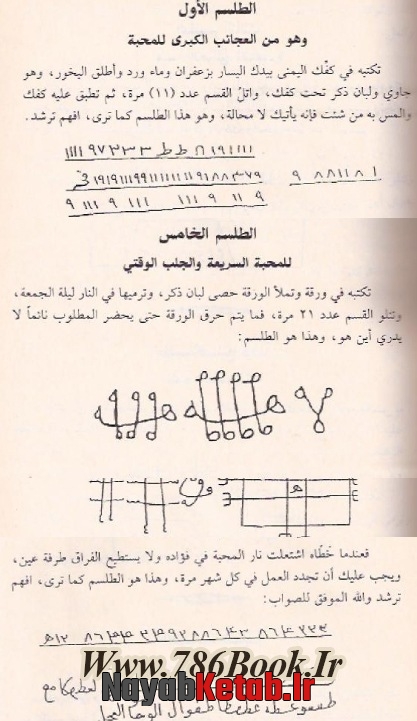 الطلسم الأول
وهو من العجائب الكبرى للمحبة
تكتبه في كفّك اليمنى بيدك اليسار بزعفران وماء ورد وأطلق البخور، وهو
جاوي ولبان ذكر تحت كفك، واتلُ القسم عدد (١١) مرة، ثم تطبق عليه كفك
والمس به من شئت فإنه يأتيك لا محالة، وهو هذا الطلسم كما ترى، افهم ترشد.
٩ ١١١ ٩ ١١١ ١١١ ٩ ١١ ٩
الطلسم الخامس
للمحبة السريعة والجلب الوقتي
تكتبه في ورقة وتملأ الورقة حصى لبان ذكر، وترميها في النار ليلة الجمعة،
وتتلو القسم عدد ٢١ مرة، فما يتم حرق الورقة حتى يحضر المطلوب نائماً لا
يدري أين هو، وهذا هو الطلسم:
فعندما خَطّاه اشتعلت نار المحبة في فؤاده ولا يستطيع الفراق طرفة عين،
ويجب عليك أن تجدد العمل في كل شهر مرة، وهذا هو الطلسم كما ترى، افهم
ترشد والله الموفق للصواب:
Www.786Book.Ir
NayabKetab.Ir